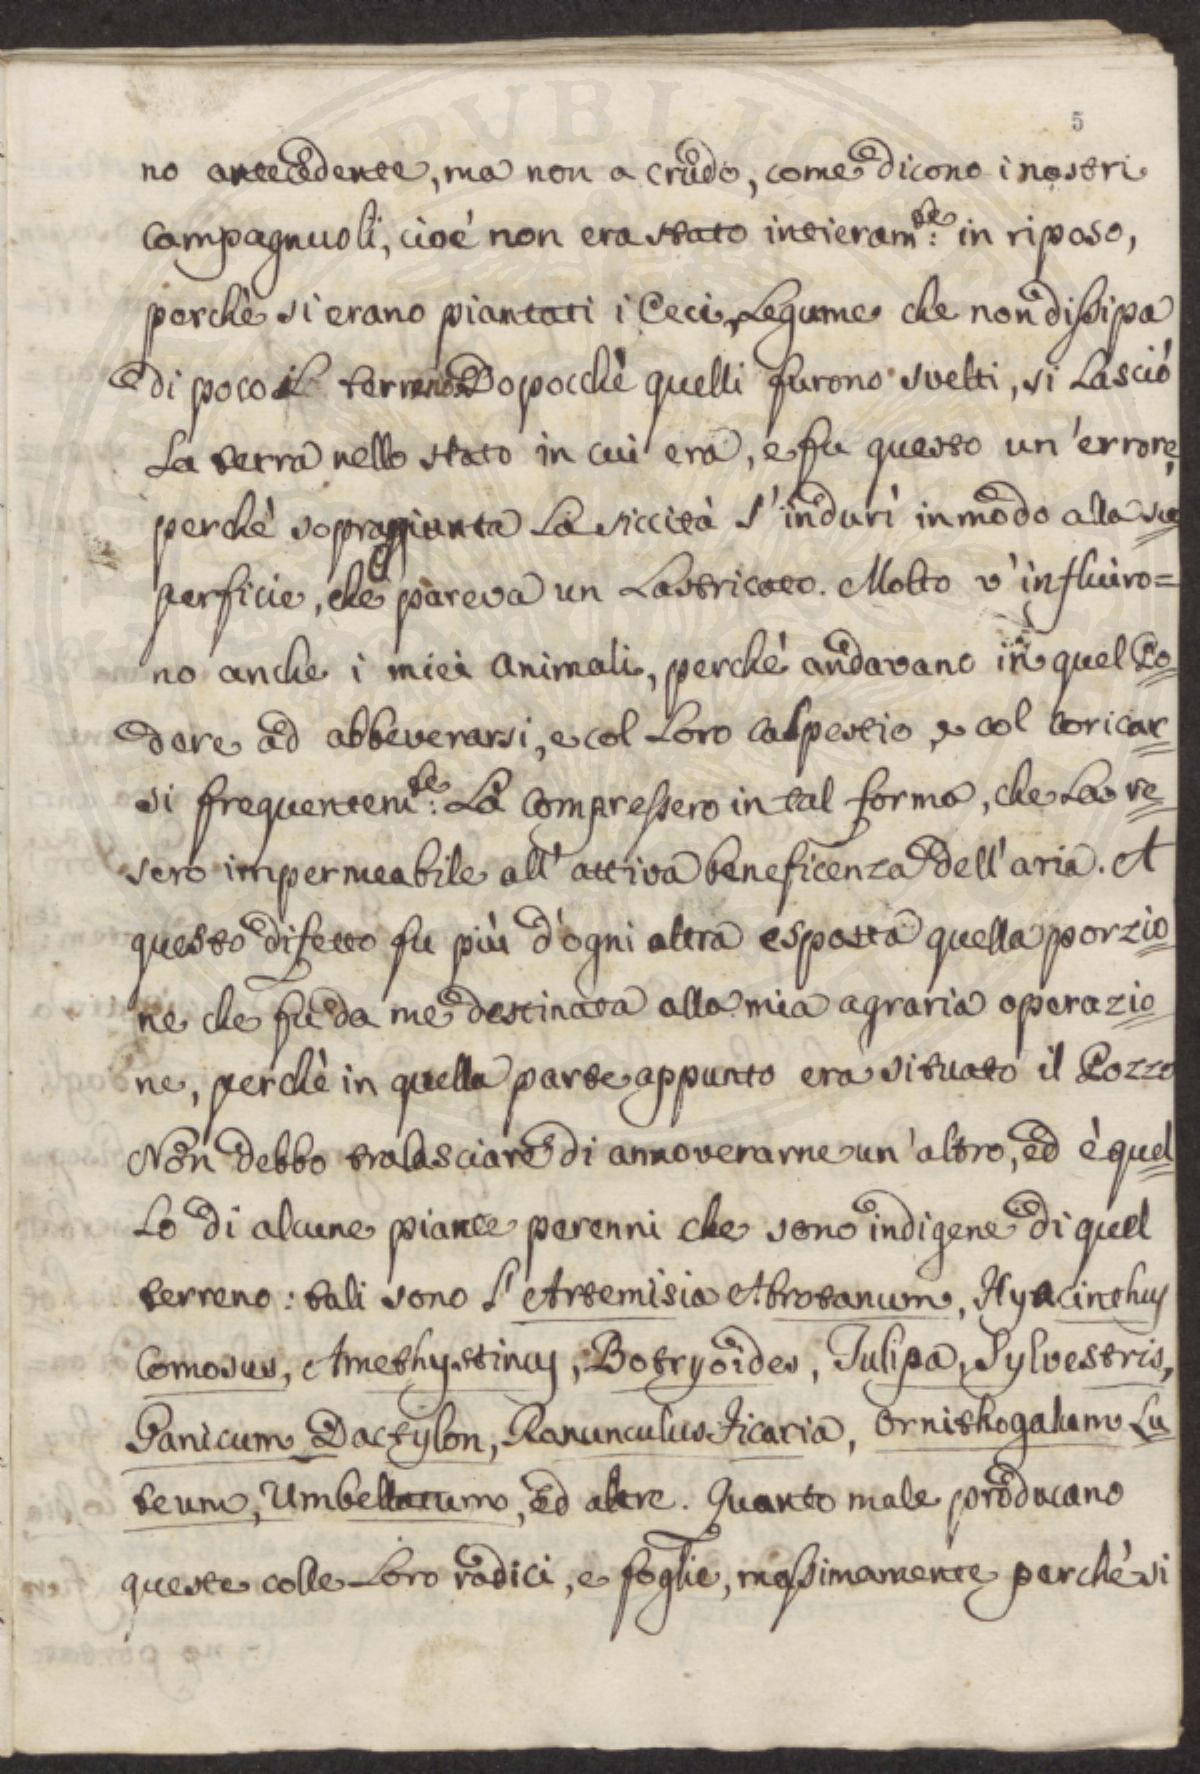 5
no antecedente, ma non a crudo, come dicono i nostri
Campagnuoli, cioè non era stato intieram.te: in riposo,
perchè si erano piantati i Ceci, Legume che non dissipa
di poco il terreno. Dopocchè quelli furono svelti, si Lasciò
La terra nello stato in cui era, e fu questo un'errore,
perchè sopraggiunta La siccità s'indurì in modo alla su=
perficie, che pareva un Lastricato. Molto v'influiro=
no anche i miei animali, perchè andavano in quel Po=
dere ad abbeverarsi, e col Loro calpestio, e col coricar=
si frequentem.te: La compressero in tal forma, che La re=
sero impermeabile all'attiva beneficenza dell'aria. A
questo difetto fu più d'ogni altra esposta quella porzio=
ne che fu da me destinata alla mia agraria operazio=
ne, perchè in quella parte appunto era situato il Pozzo
Non debbo tralasciare di annoverarne un'altro, ed è quel=
Lo di alcune piante perenni che sono indigene di quel
terreno: tali sono l'Artemisia Abrotanum, Hyacinthus
Comosus, Amethystinus, Botryoides, Tulipa, Sylvestris,
Panicum Dactylon, Ranunculus Ficaria, Ornithogalum Lu=
teum, Umbellatum, ed altre. Quanto male producano
queste colle Loro radici, e foglie, massimamente perchè si